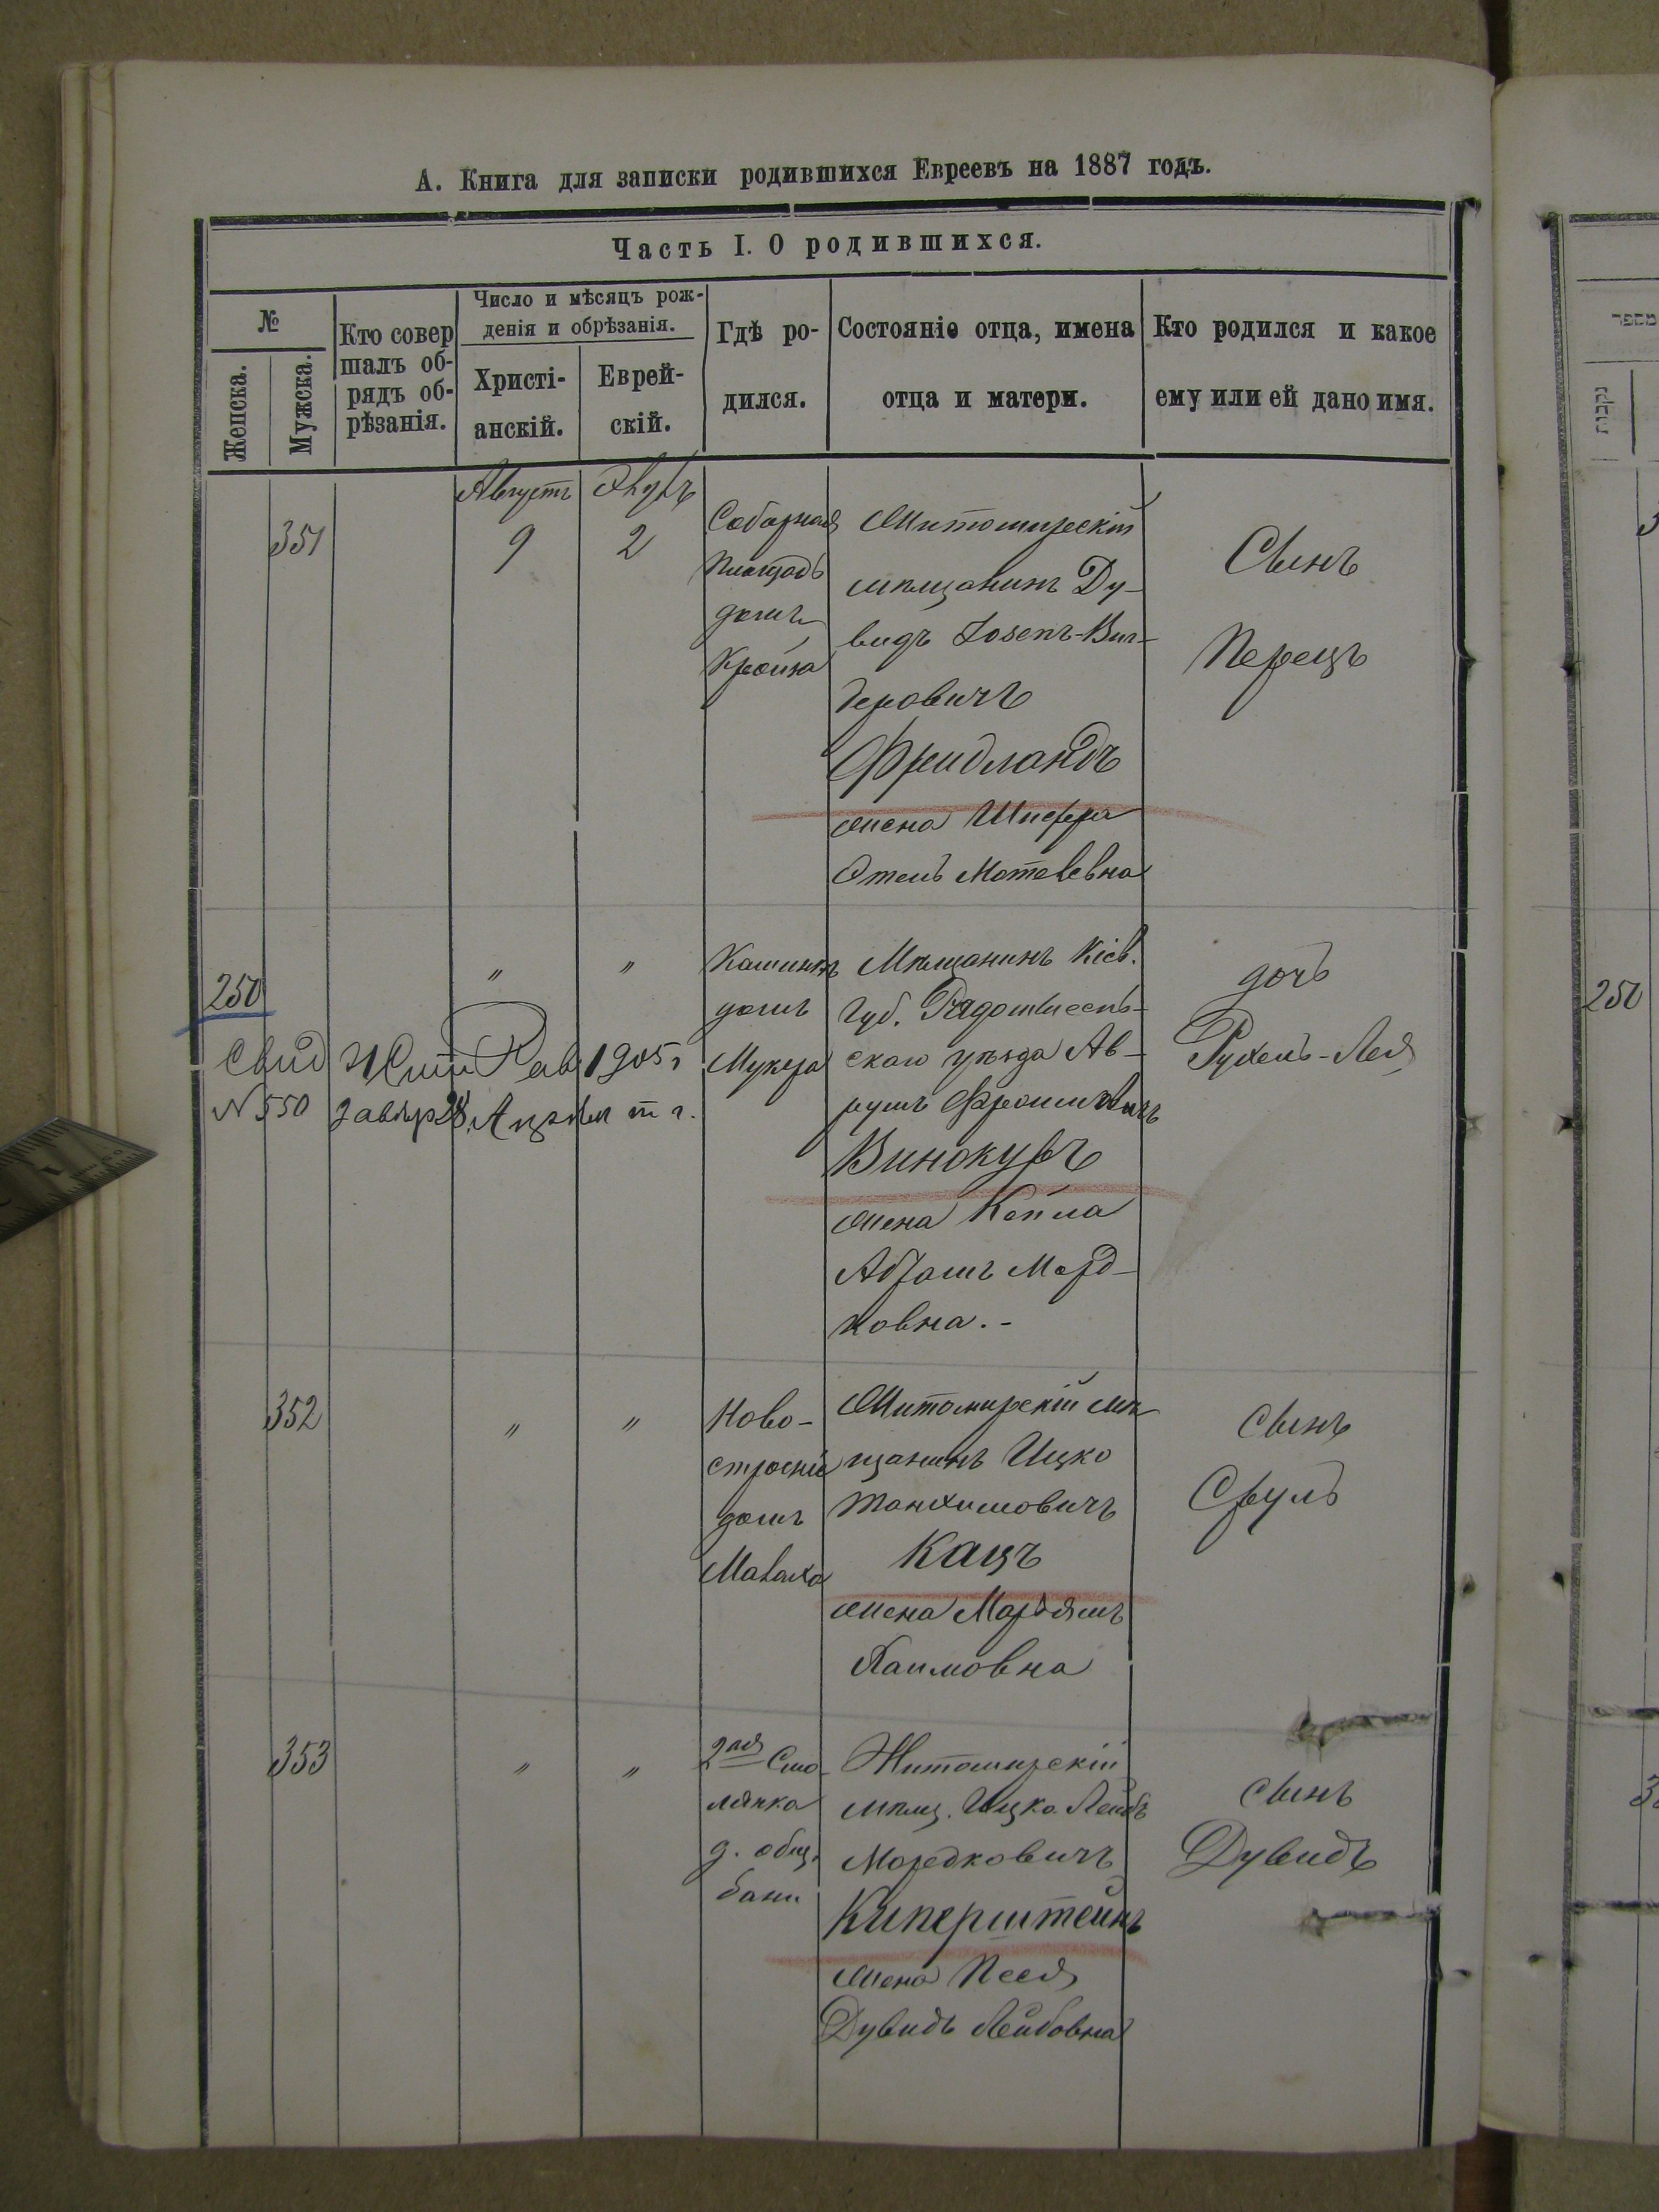 А. Книга для записки родившихся Евреевъ на 1887 годъ.
Часть I. О родившихся.
№
Женска.
Мужска.
Кто совер
шалъ об-
рядъ об-
рѣзанія.
Число и мѣсяцъ рож-
денія и обрѣзанія.
Христі-
анскій.
Еврей-
скій.
Гдѣ ро-
дился.
Состояніе отца, имена
отца и матери.
Кто родился и какое
ему или ей дано имя.
351
Августъ
9
2
Соборная
площадь
домъ
Кройна
Житомирскій
мѣщанинъ Ду-
видъ Іосепъ-Виг-
деровичъ
Фридландъ
жена Шифра
Этель Мотелевна
Сынъ
Перецъ
250
"
"
домъ
Мукера
Мѣщанинъ Кіев.
губ. Радомысль-
скаго уѣзда Ав-
румъ Фроимовичъ
Винокуръ
жена Кейла
АбрамъМорд-
ковна.-
дочь
Рухель-Лея
Свид Жит Рав 1905 г
№ 550
28 т г.
352
"
"
Ново-
строеніе
домъ
Малаха
Житомирскій мѣ
щанинъ Ицко
Танхимовичъ
Кацъ
жена Марьямъ
Хаимовна
сынъ
Сруль
353
"
"
2ая Смо-
лянка
д. общ.
бани
Житомирскій
мѣщ. Ицко Лейбъ
Мордковичъ
Киперштейнъ
жена Песя
Дувидъ Лейбовна
сынъ
Дувидъ
מספר
נקבות
250